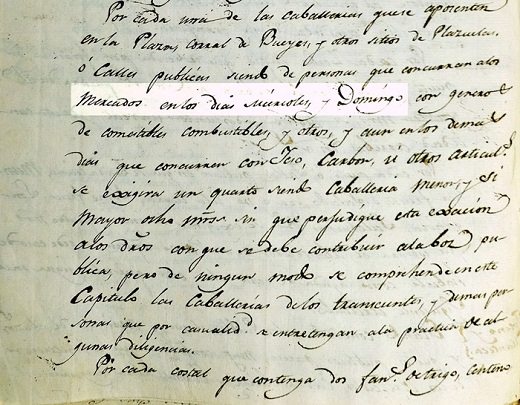 Por cada una de las caballerias que se aposenten
en la Plaza, corral de Bueyes, y otros sitios de Plazuelas,
ó Calles publicas siendo de personas que concurran alos
Mercados en los dias Miércoles, y Domingo con generos
de comestibles combustibles, y otros, y aun en los demas
dias que concurran con Yeso, Carbon, ú otros articul.s
se exigira un quarto siendo Caballeria menor, y si
Mayor ocho mrs. sin que perjudique esta exacion
alos dros. con que se debe contribuir ala boz pu-
blica, pero de ningun modo se comprehende en este
Capitulo las Caballerias delos transeuntes, y demas per-
sonas que por casualid.d se entretengan ala practica de al-
gunas diligencias.
Por cada costal que contenga dos fan.s de trigo, centeno